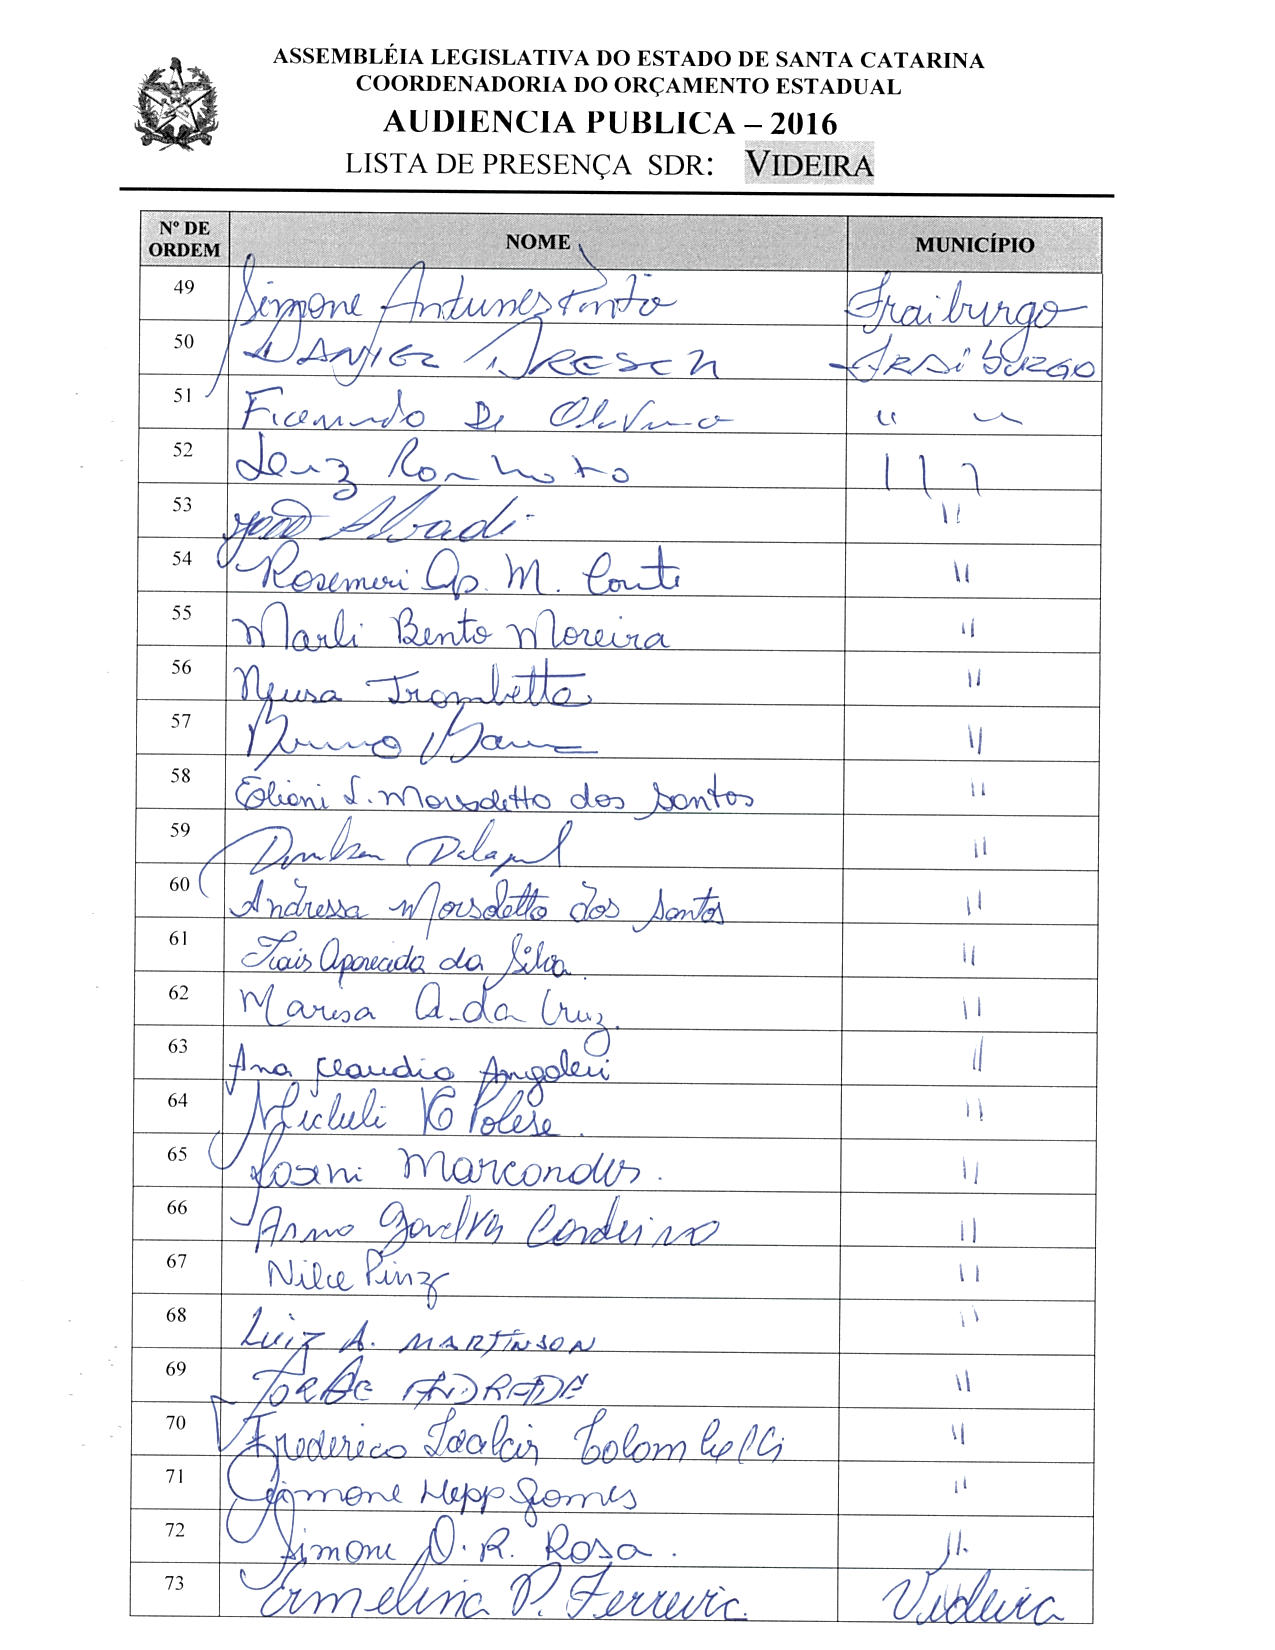 ASSEMBLÉIA LEGISLATIVA DO ESTADO DE SANTA CATARINA
COORDENADORIA DO ORÇAMENTO ESTADUAL
AUDIENCIA PUBLICA – 2016
LISTA DE PRESENÇA SDR: VIDEIRA
Nº DE ORDEM NOME MUNICÍPIO
49 Simone Antunes Pinto Fraiburgo
50 DANIEL DRESCH FRAIBURGO
51 De " "
52 Luiz
53 João Abadi "
54 Rosemeri Ap. M. Conte "
55 Marli Bento Moreira "
56 Neusa Trombetta "
57 Bruno "
58 Elioni S. Morsoletto dos Santos "
59 "
60 Andressa Morsoletto dos Santos "
61 Tais Aparecida da Silva "
62 Marisa A. da Cruz "
63 Ana Claudia Angoleri "
64 Micheli Polese "
65 Roseni Marcondes. "
66 Cordeiro "
67 Nilce Pinz "
68 LUIZ A. MARTINSON "
69 JORGE ANDRADE "
70 Frederico "
71 Simone Hepp Gomes "
72 Simone D. R. Rosa. "
73 Ermelina P. Ferreira Videira